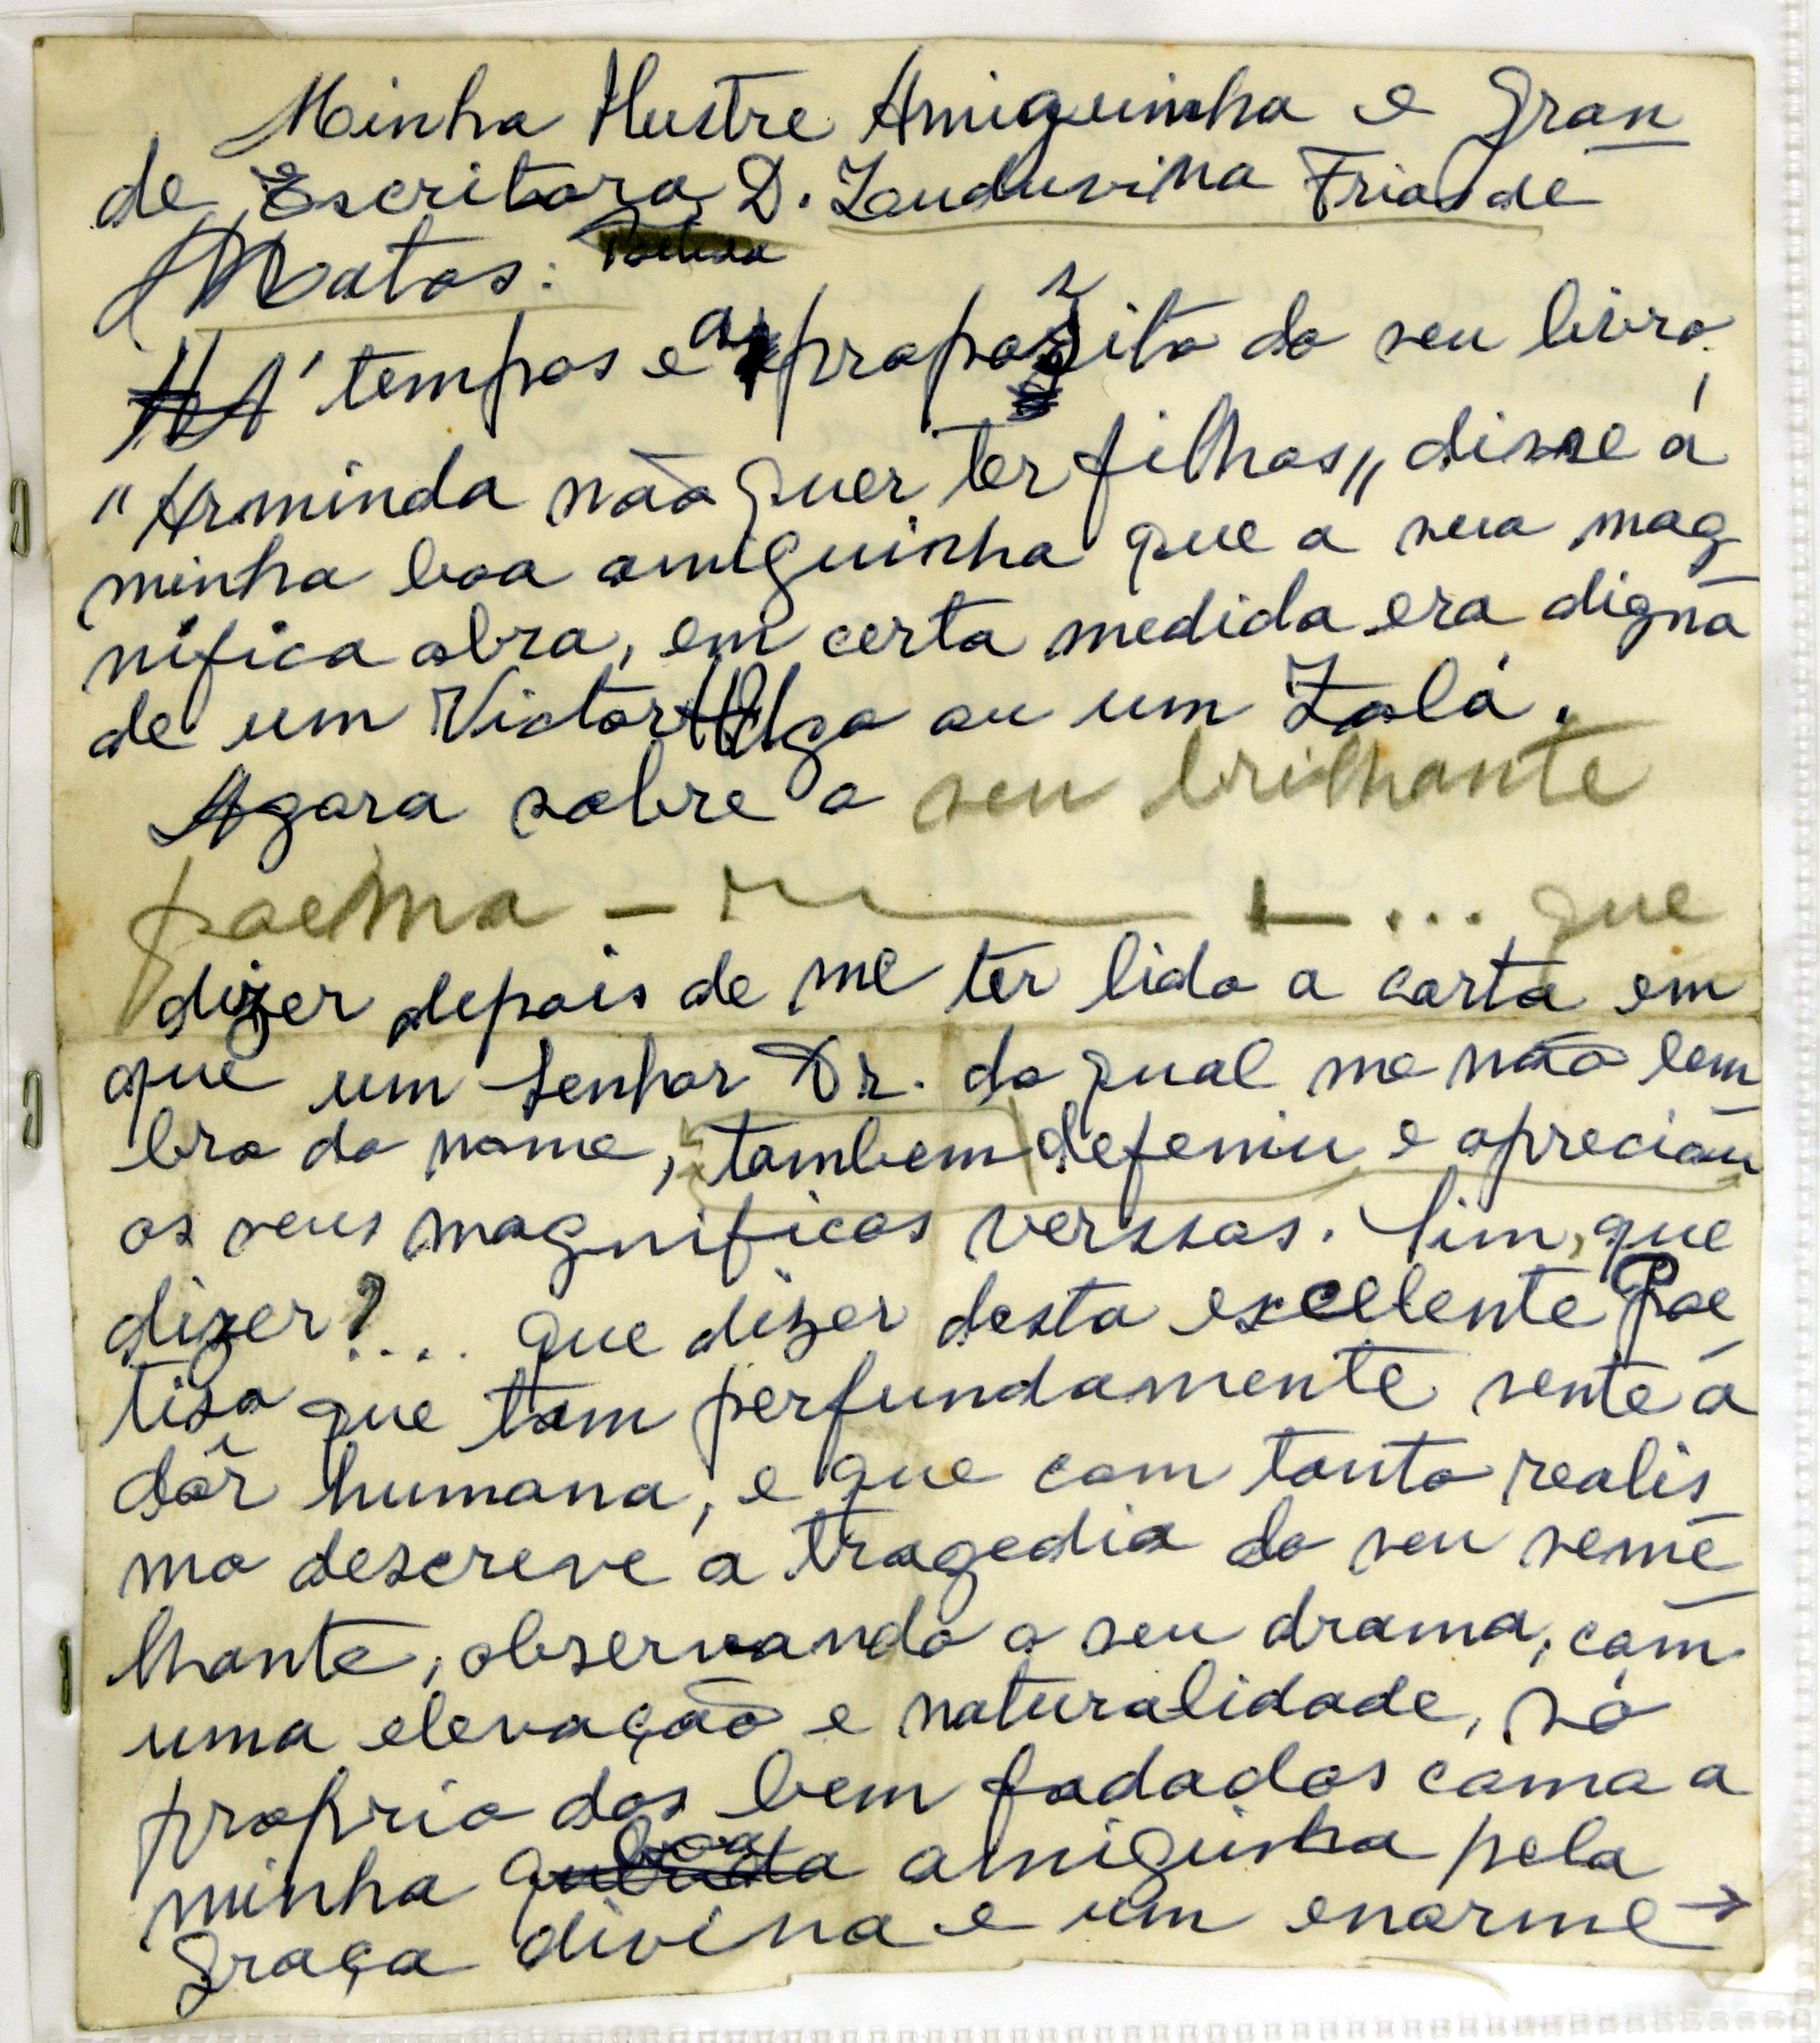 Minha Ilustre Amiguinha e Gran
de Escritora D. Landuvina Frias de
Matos: Poetisa
Á tempos e a propozito do seu livro,
"Arminda não quer ter filhos,, disse á
minha boa amiguinha que a sua mag
nifica obra, em certa medida era digna
de um Victor Hugo ou um Zolá.
Agora sobre o seu brilhante
poema — ... que
dizer depois de me ter lido a carta em
que um Senhor Dr. do qual me não lem
bro do nome, tambem defeniu e apreciou
os seus magnificos verssos. Sim, que
dizer?.... que dizer desta excelente Poe
tisa que tam perfundamente sente á
dôr humana, e que com tanto realis
mo descreve a tragedia do seu seme
lhante, observando o seu drama, com
uma elevação e naturalidade, só
proprio dos bem fadados como a
minha boa amiguinha pela
Graça divina e um enorme →